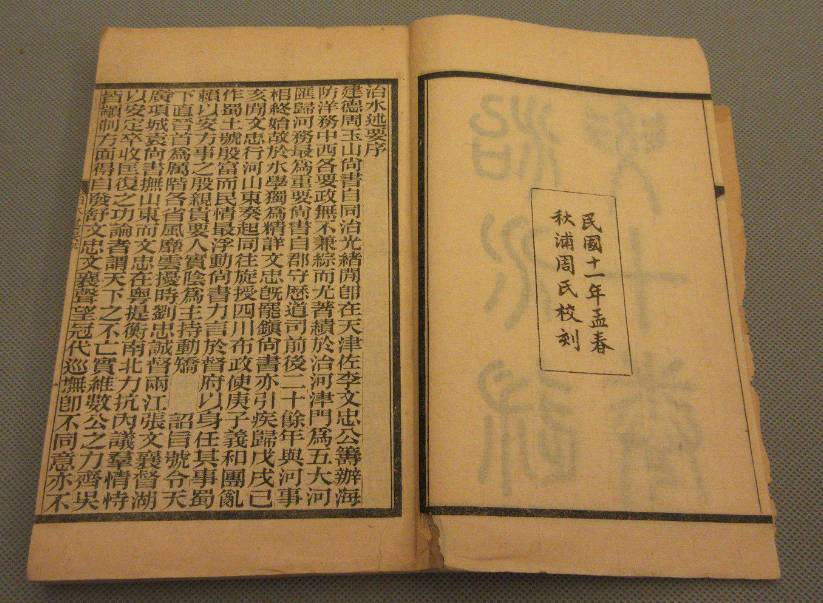 民國十一年孟春
秋浦周氏校刻
治水述要序
建德周玉山尚書自同治光緒閒卽在天津佐李文忠公籌辦海
防洋務中西各要政無不兼綜而尤著績於治河津門爲五大河
匯歸河務最爲重要尚書自郡守歷道司前後二十餘年與河事
相終始故於水學獨爲精詳文忠旣罷鎭尚書亦引疾歸戊戌己
亥閒文忠行河山東奏起同往旋授四川布政使庚子義和團亂
作蜀土號殷富而民情最浮動尚書力言於督府以身任其事蜀
賴以安方事之殷親貴要人實陰爲主持動矯 詔旨號令天
下直晉首爲厲階各省風靡雲擾時劉忠誠督兩江張文襄督湖
廣項城袁尚書撫山東而文忠在粵提衡南北力抗內議羣情恃
以安定卒收匡復之功論者謂天下之不亡實維數公之力齊吳
皆顓制方面得自發舒文忠文襄聲望冠代巡撫卽不同意亦不